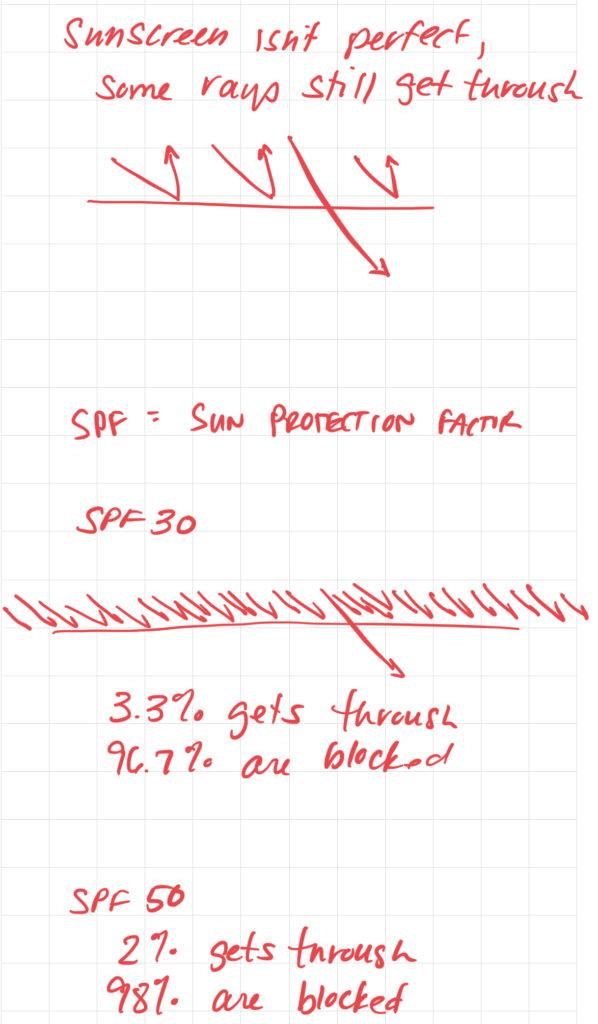 Sunscreen isn't perfect,
some rays still get through
SPF = SUN PROTECTION FACTOR
SPF 30
3.3% gets through
96.7% are blocked
SPF 50
2% gets through
98% are blocked